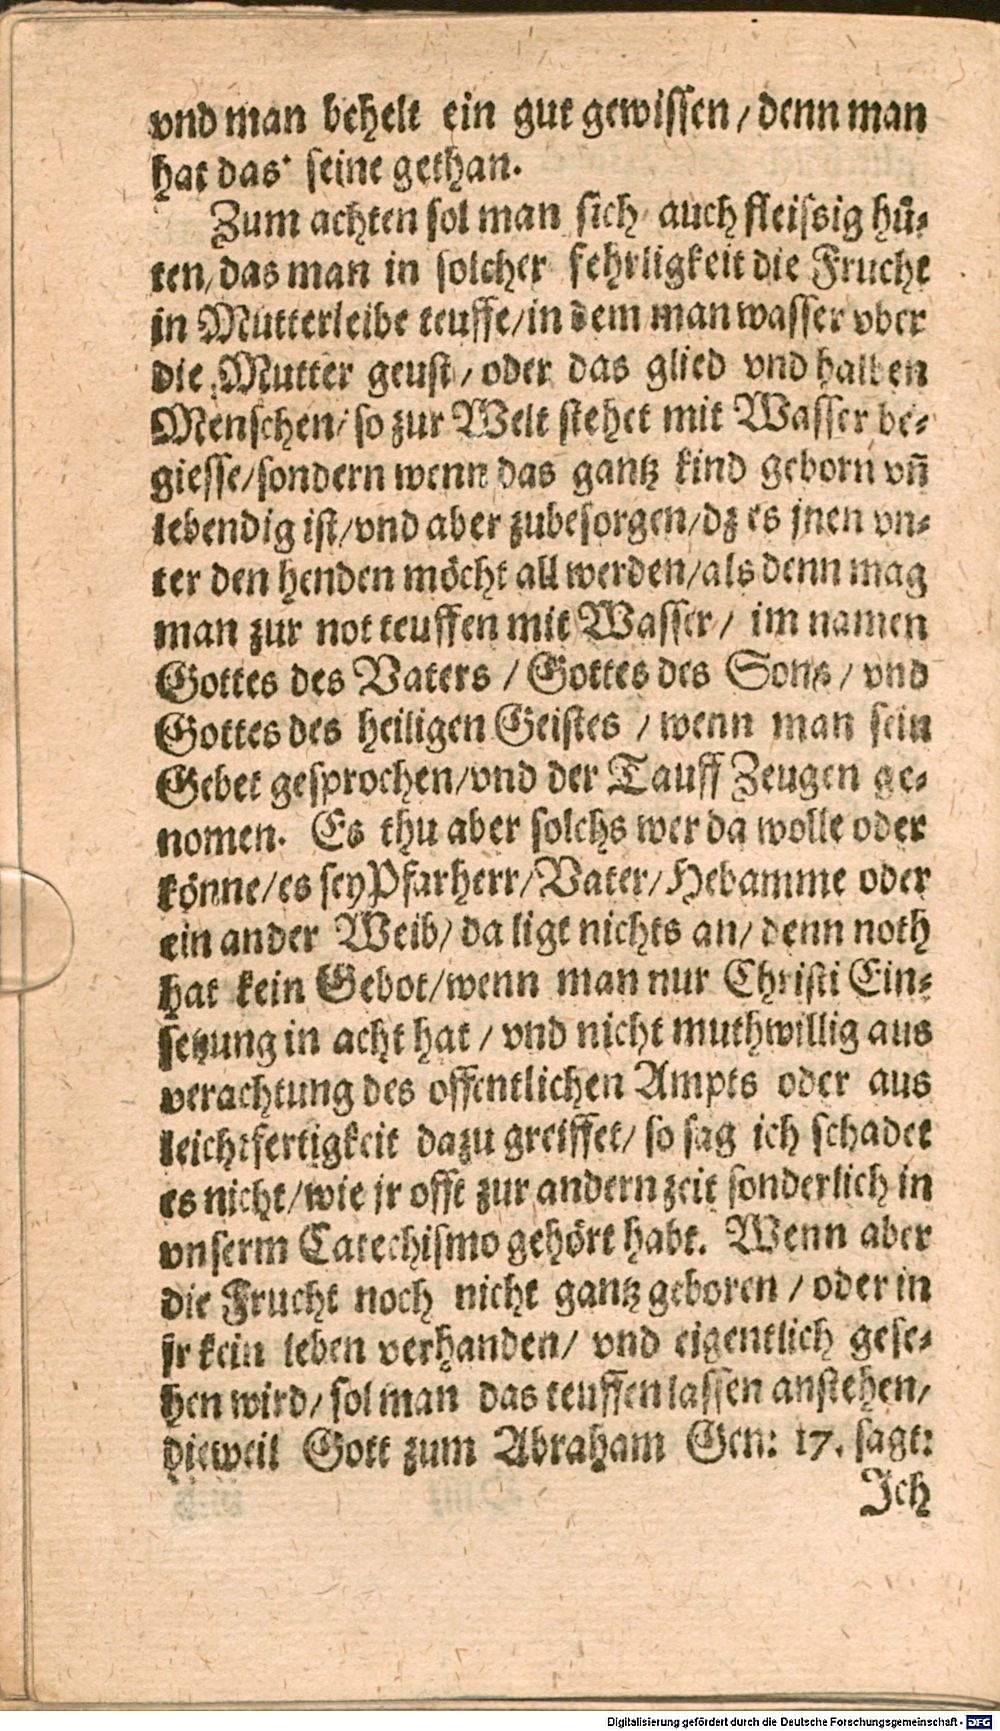 vnd man behelt ein gut gewissen / denn man
hat das seine gethan.
Zum achten sol man sich auch fleissig hů-
ten / das man in solcher fehrligkeit die Frucht
in Mutterleibe teuffe / in dem man wasser vber
die Mutter geust / oder das glied vnd halben
Menschen / so zur Welt stehet mit Wasser be-
giesse / sondern wenn das gantz kind geborn vñ
lebendig ist / vnd aber zubesorgen / dz es jnen vn-
ter den henden möcht all werden / als denn mag
man zur not teuffen mit Wasser / im namen
Gottes des Vaters / Gottes des Sons / vnd
Gottes des heiligen Geistes / wenn man sein
Gebet gesprochen / vnd der Tauff Zeugen ge-
nomen. Es thu aber solchs wer da wolle oder
könne / es sey Pfarherr / Vater / Hebamme oder
ein ander Weib / da ligt nichts an / denn noth
hat kein Gebot / wenn man nur Christi Ein-
setzung in acht hat / vnd nicht muthwillig aus
verachtung des offentlichen Ampts oder aus
leichtfertigkeit dazu greiffet / so sag ich schadet
es nicht / wie jr offt zur andern zeit sonderlich in
vnserm Catechismo gehört habt. Wenn aber
die Frucht noch nicht gantz geboren / oder in
jr kein leben verhanden / vnd eigentlich gese-
hen wird / sol man das teuffen lassen anstehen /
dieweil Gott zum Abraham Gen: 17. sagt:
Ich
Digitalisierung gefördert durch die Deutsche Forschungsgemeinschaft - DFG